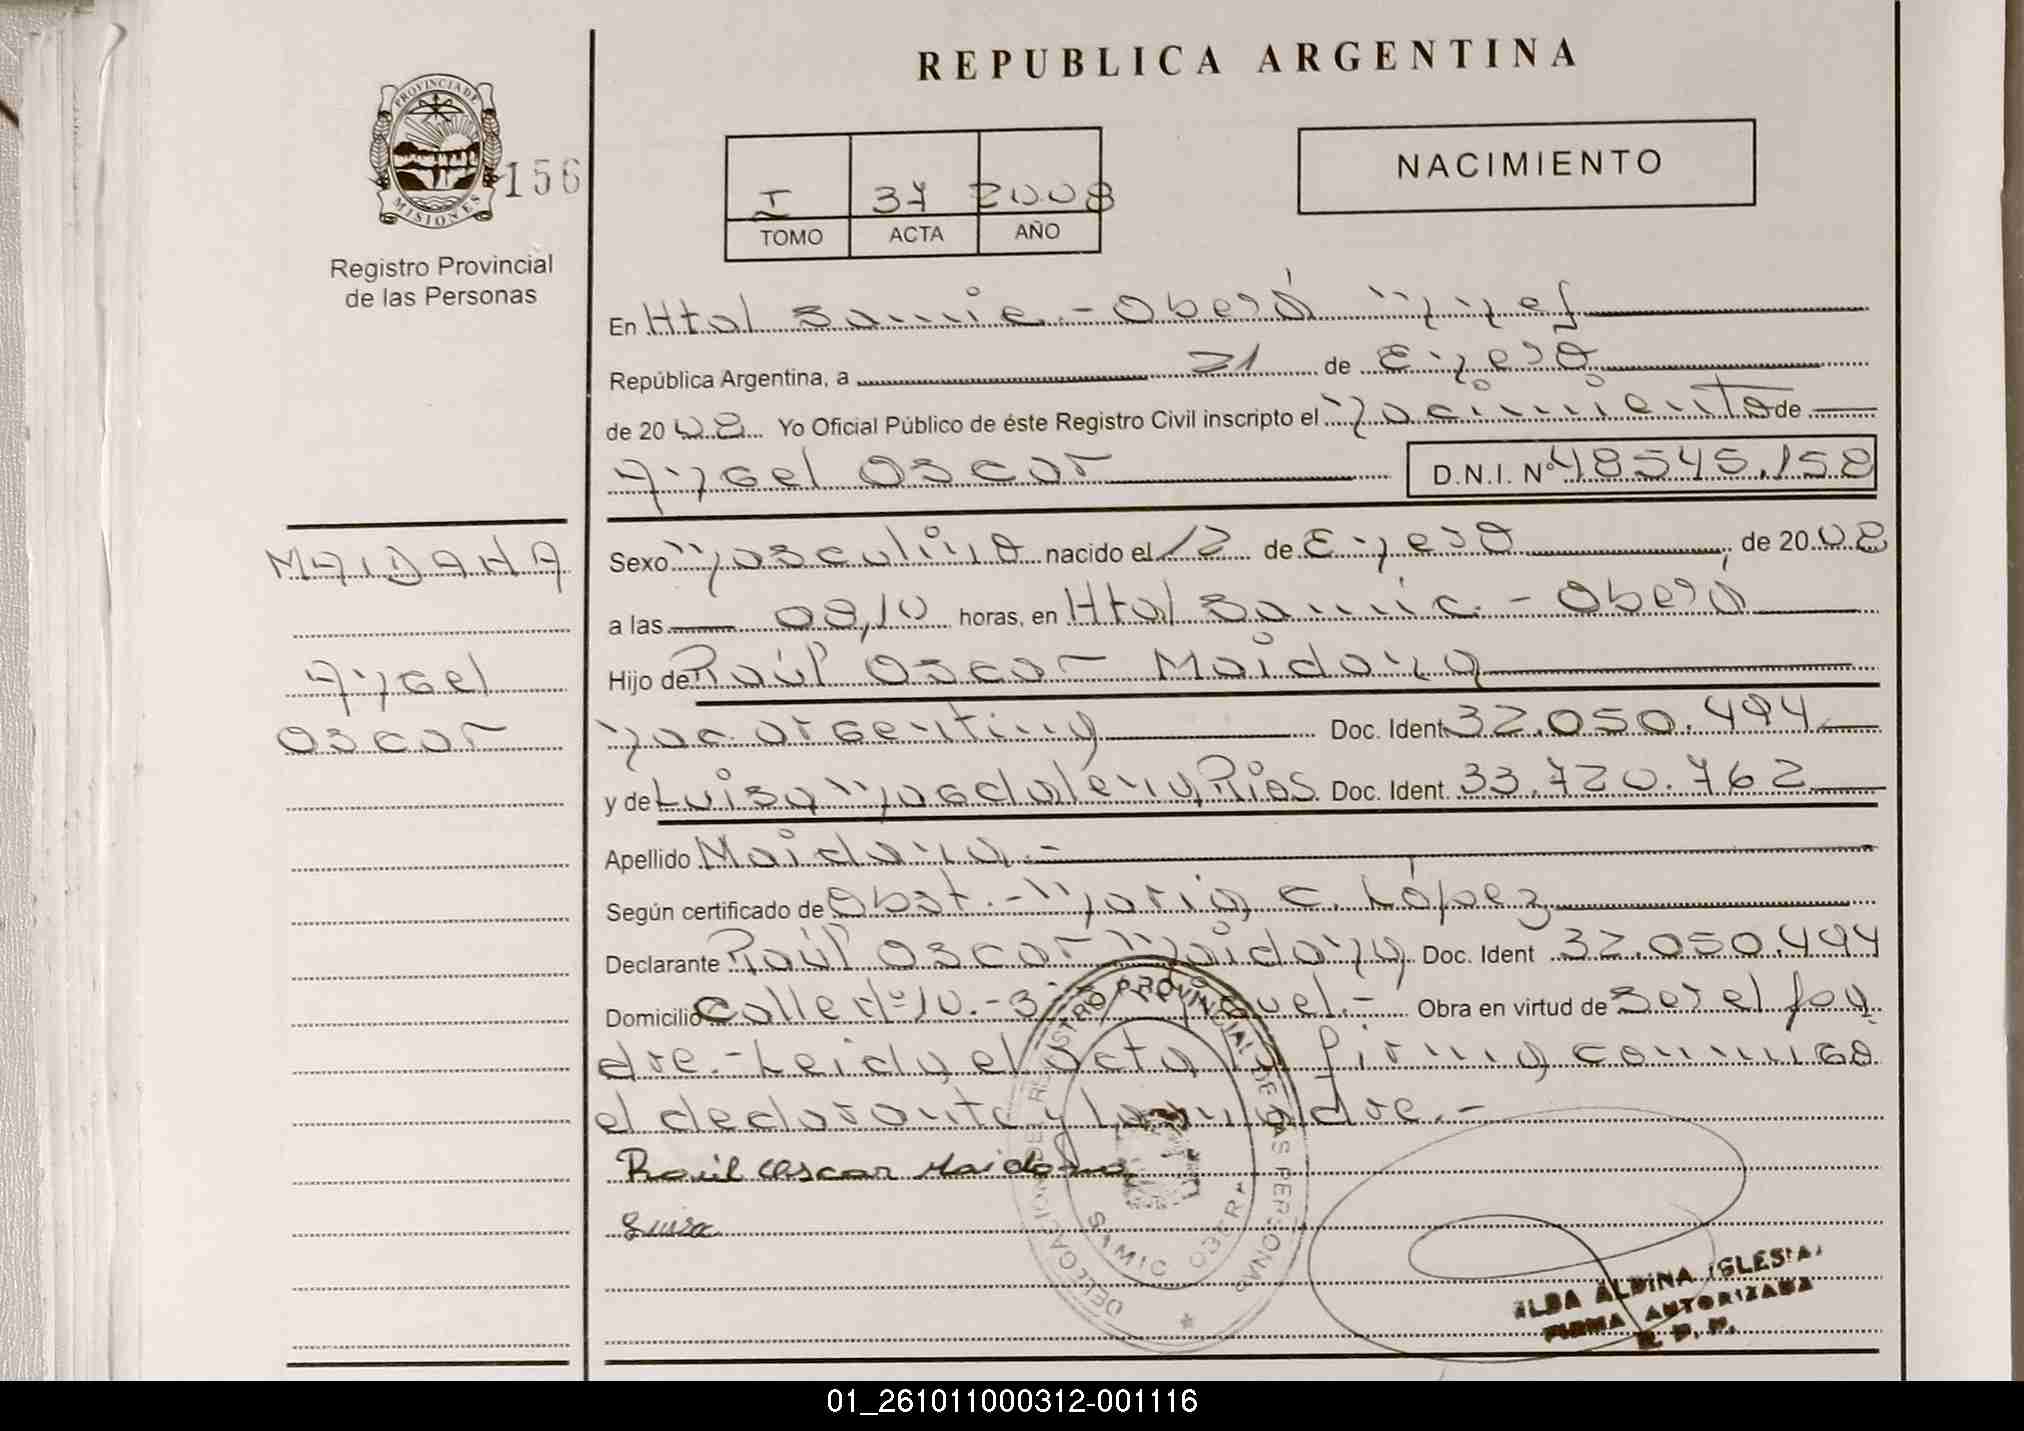 REPUBLICA ARGENTINA
PROVINCIA DE
MISIONES
156
Registro Provincial
de las Personas
I 37 2008
TOMO ACTA AÑO
NACIMIENTO
En Htal Samic - Oberá Mnes
República Argentina, a 21 de Enero
de 2008 Yo Oficial Público de éste Registro Civil inscripto el Nacimiento de
Angel Oscar D.N.I. Nº 48545.158
MAIDANA
Angel
Oscar
Sexo Masculino nacido el 12 de Enero, de 2008
a las 08,10 horas, en Htal Samic. - Oberá
Hijo de Raúl Oscar Maidana
nac. argentina Doc. Ident. 32.050.494
y de Luisa Magdalena Rios Doc. Ident. 33.720.762
Apellido Maidana.-
Según certificado de Obst.- Maria C. López
Declarante Raúl Oscar Maidana Doc. Ident 32.050.494
Domicilio Calle nº 10.- Obra en virtud de Ser el pa
dre.- Leida el acta la firma conmigo
el declarante y la madre.-
Raúl Oscar Maidana
Luisa
DELEGACION DE REGISTRO PROVINCIAL DE LAS PERSONAS
SAMIC OBERA
ILDA ALDINA IGLESIAS
FIRMA AUTORIZADA
R. P. P.
01_261011000312-001116